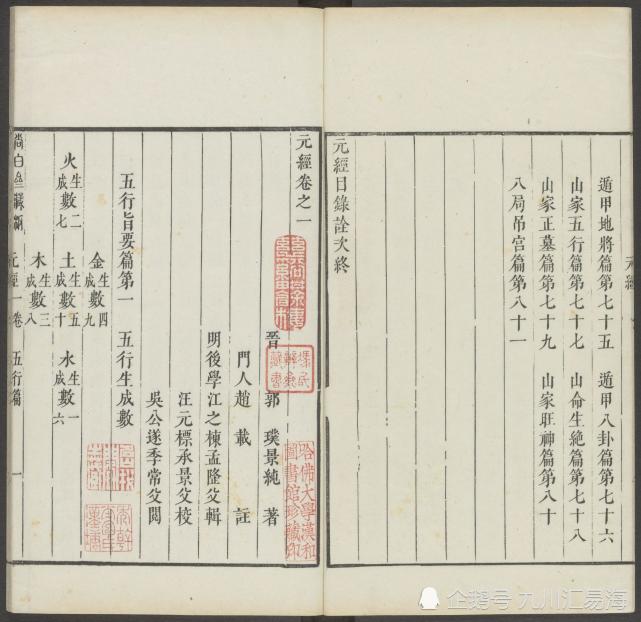 元經
遁甲地將篇第七十五　遁甲八卦篇第七十六
山家五行篇第七十七　山侖生絶篇第七十八
山家正墓篇第七十九　山家旺神篇第八十
八局吊宫篇第八十一
元經目錄詮次終
元經卷之一
晉　郭　璞景純　著
門人趙　載　註
明後學江之棟孟隆父輯
汪元標承景父校
吳公遂季常父閱
哈佛大學漢和圖書館珍藏印
五行旨要篇第一　五行生成數
金生數四成數九
火生數二成數七　土生數五成數十　水生數一成數六
木生數三成數八
尚白齋鐫
元經一卷　五行篇　一
企鹅号 九川汇易海